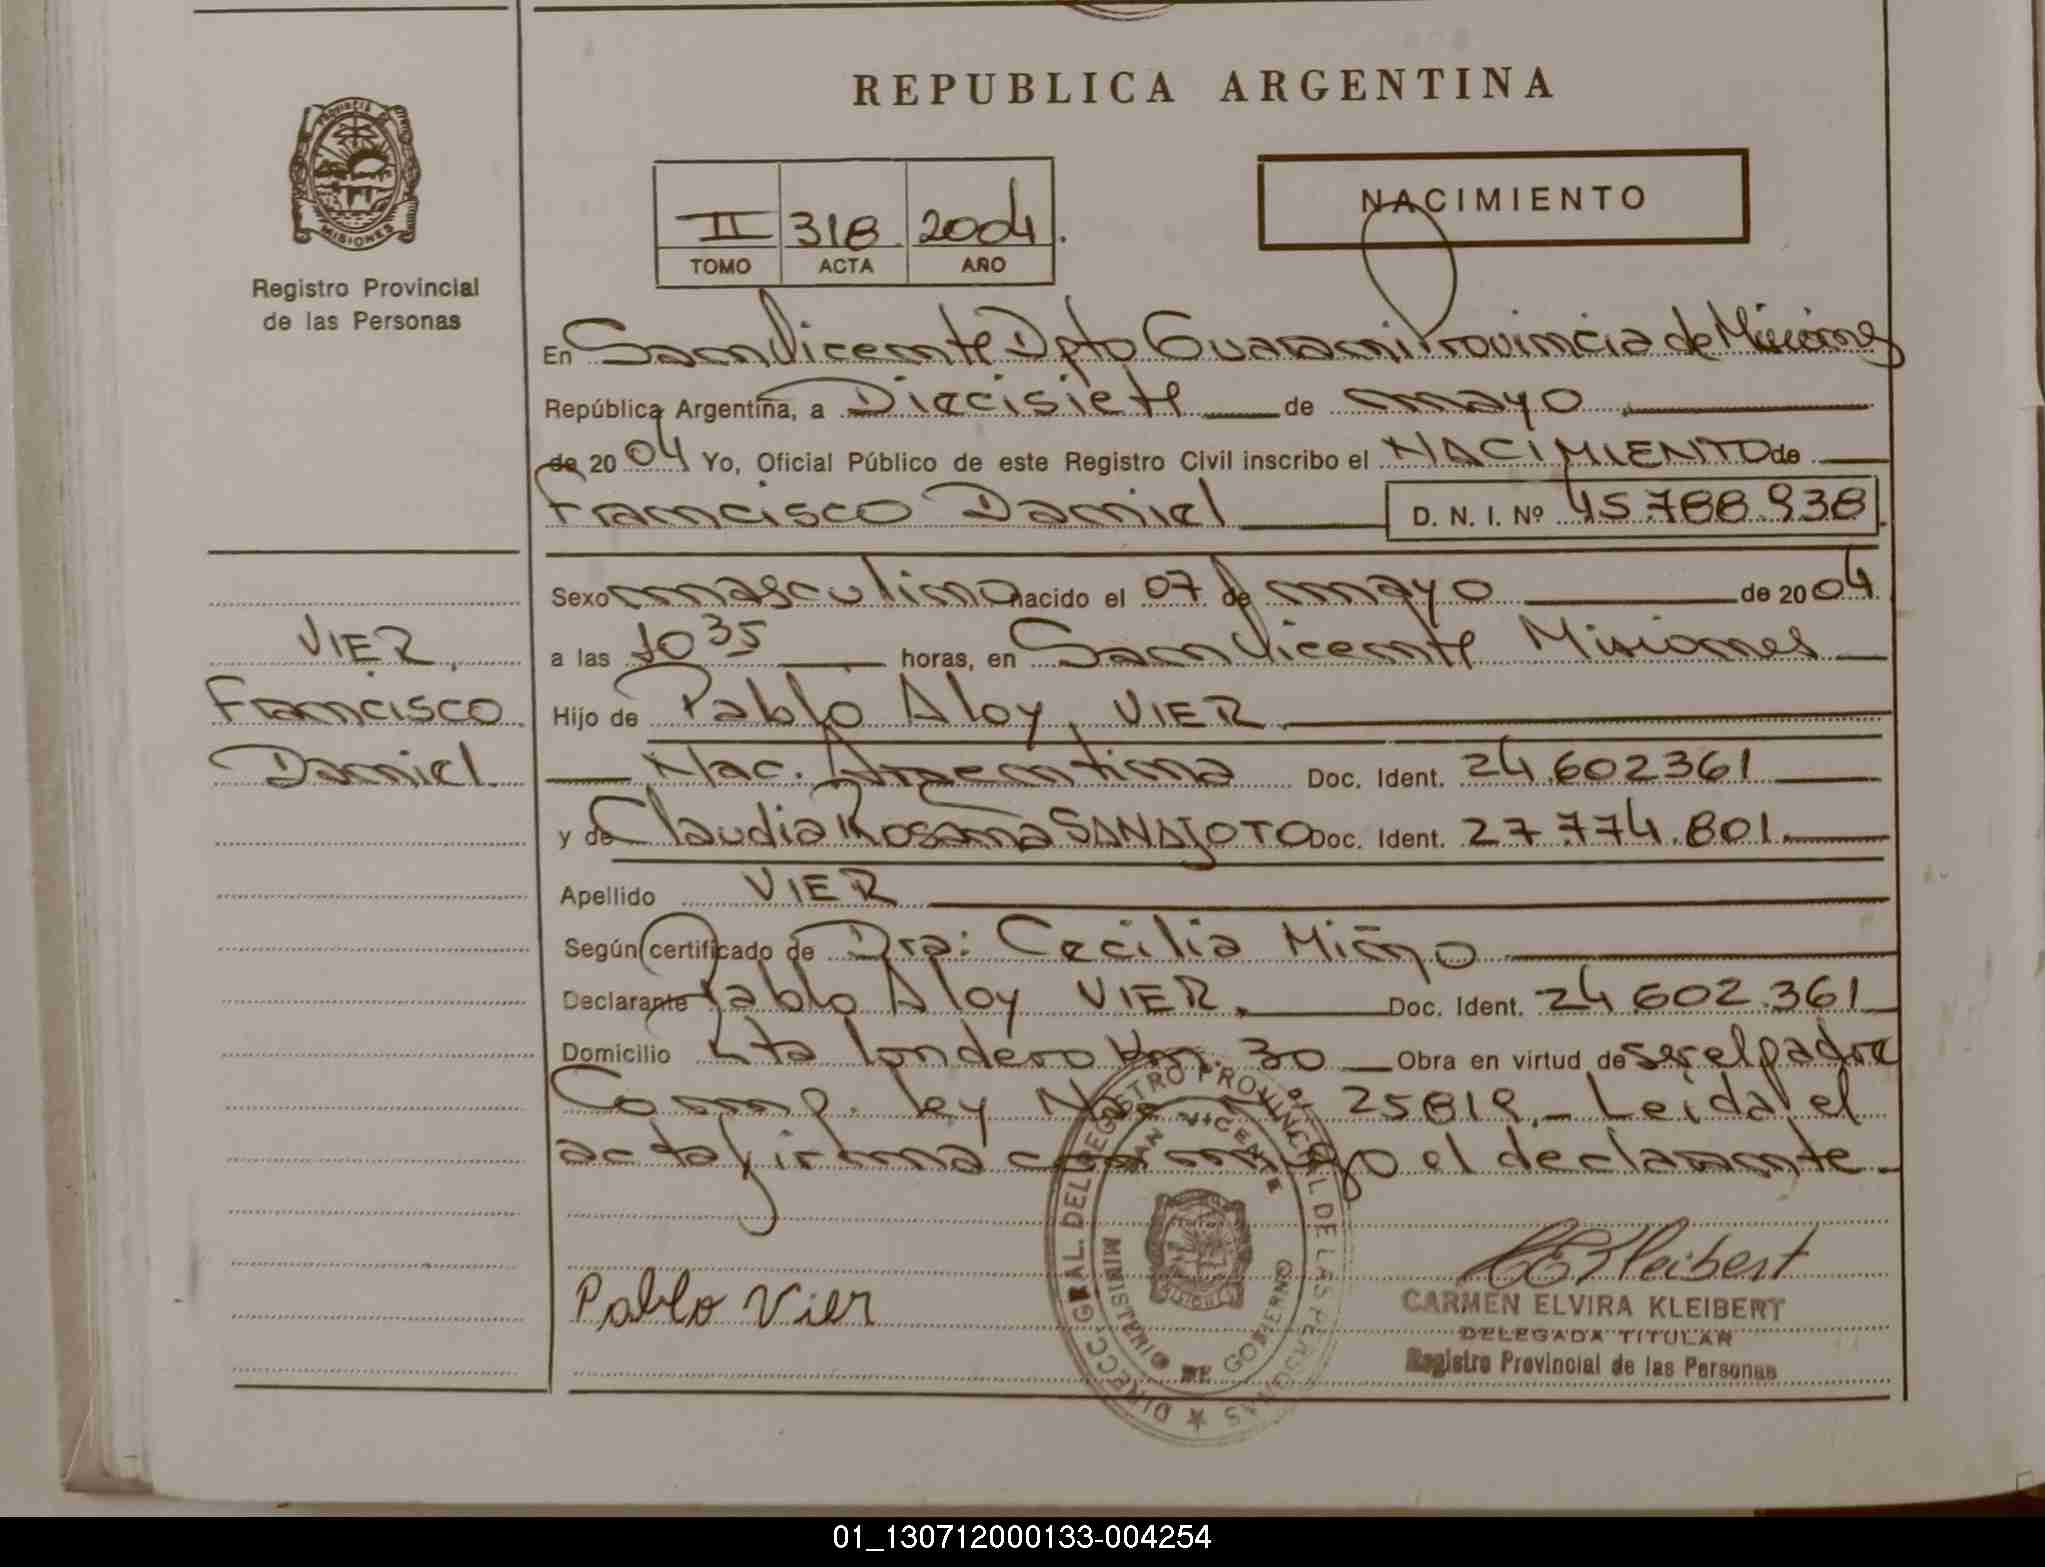 REPUBLICA ARGENTINA
PROVINCIA DE
MISIONES
Registro Provincial
de las Personas
II 318 2004.
TOMO ACTA AÑO
NACIMIENTO
En San Vicente Dpto Guarani Provincia de Misiones
República Argentina, a Diecisiete de mayo
de 2004 Yo, Oficial Público de este Registro Civil inscribo el NACIMIENTO de
Francisco Daniel D. N. I. Nº 45.788.938
VIER,
Francisco
Daniel
Sexo masculino nacido el 07 de mayo de 2004
a las 10 35 horas, en San Vicente Misiones
Hijo de Pablo Aloy VIER
Nac. Argentina Doc. Ident. 24.602361
y de Claudia Rosana SANAJOTO Doc. Ident. 27.774.801.
Apellido VIER
Según certificado de Dra: Cecilia Miño
Declarante Pablo Aloy VIER. Doc. Ident. 24.602.361
Domicilio Londero Km. 30 Obra en virtud de ser el padre
Comp. ley Nac Nº 25819.- Leida el
acta firma conmigo el declarante-
Pablo Vier
DIRECC. GRAL. DEL REGISTRO PROVINCIAL DE LAS PERSONAS
SAN VICENTE
MINISTERIO DE GOBIERNO
CEKleibert
CARMEN ELVIRA KLEIBERT
DELEGADA TITULAR
Registro Provincial de las Personas
01_130712000133-004254